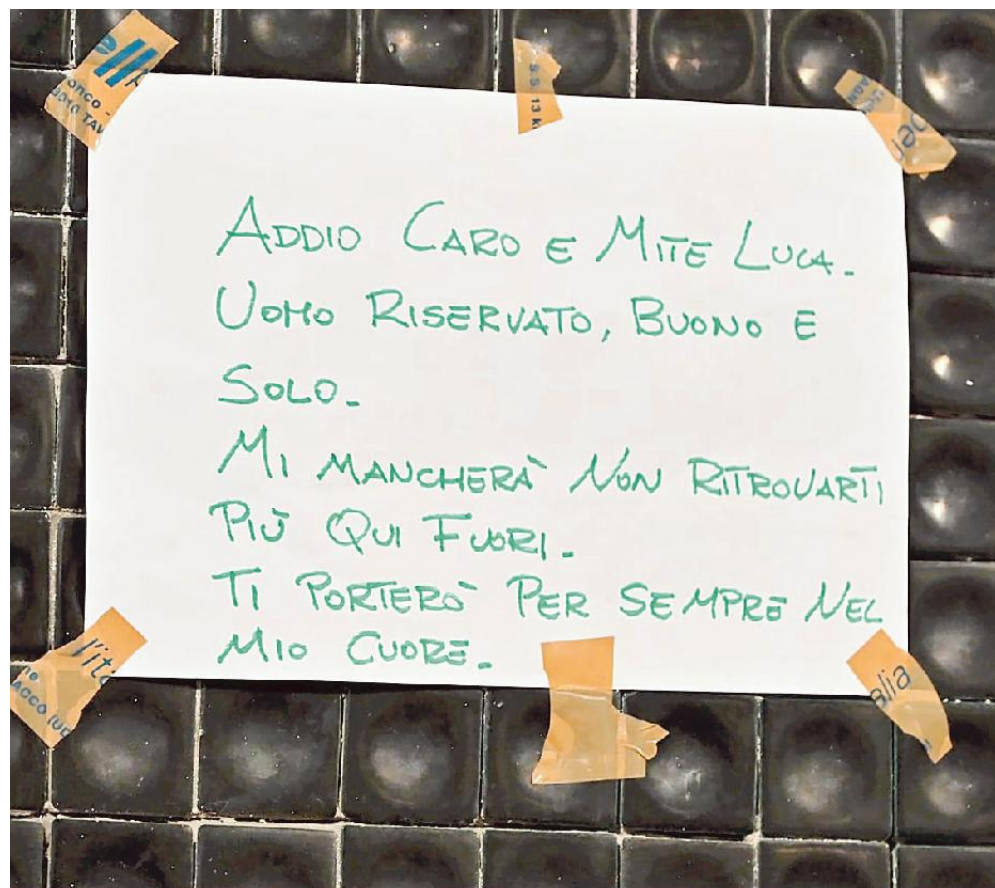 ADDIO CARO E MITE LUCA.
UOMO RISERVATO, BUONO E
SOLO.
MI MANCHERÀ NON RITROVARTI
PIÙ QUI FUORI.
TI PORTERÒ PER SEMPRE NEL
MIO CUORE.